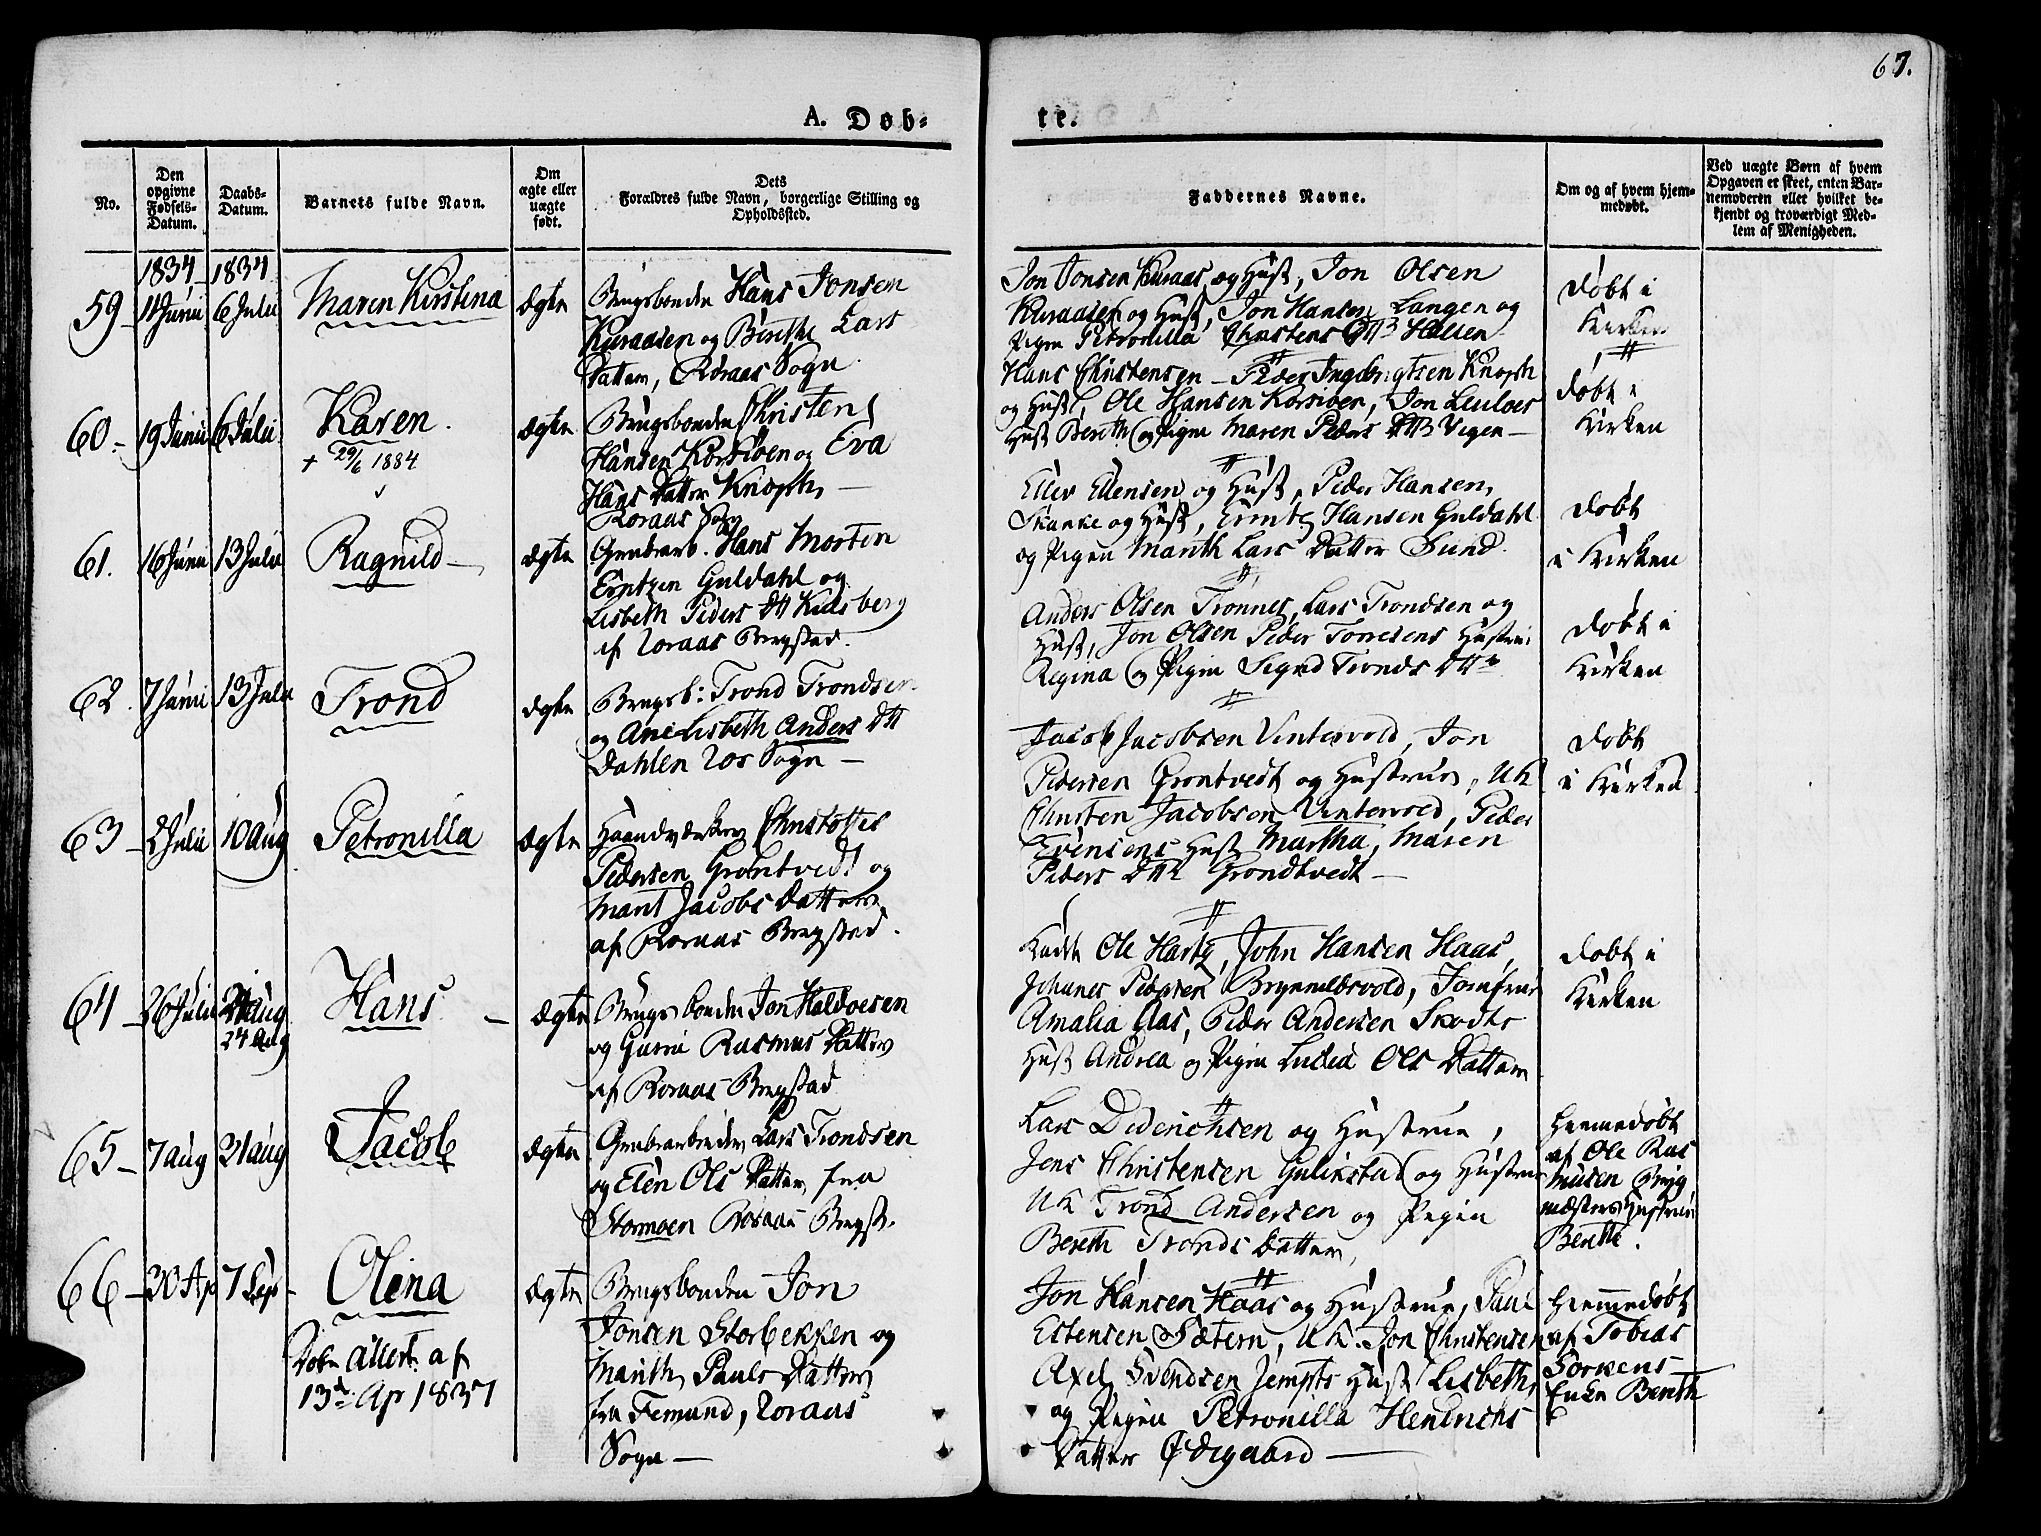 67.
A. Døb-
te.
No.
Den opgivne Fødsels-Datum.
Daabs-Datum.
Barnets fulde Navn.
Om ægte eller uægte født.
Dets
Forældres fulde Navn, borgerlige Stilling og
Opholdssted.
Faddernes Navne.
Om og af hvem hjem-
medøbt.
Ved uægte Børn af hvem
Opgaven er skeet, enten Bar-
nemoderen eller hvilket be-
kjendt og troværdigt Med-
lem af Menigheden.
1834 1834
59 11 Junii 6 Julii Maren Kirstina ægte
Brugsbonden Hans Jonsen
Kuraasen og Berethe Lars
Datter, Røraas Sogn
Jon Jonsen Kuraas og Hust, Jon Olsen
Kuraasen og Hust, Jon Hansen Langen og
Pigen Petronilla Christens Dttr
Døbt i
Kirken
60 19 Junii 6 Julii Karen ægte
+ 29/6 1884
Brugsbonden Christen
Hansen Korssioen og Eva
Hans Datter Knoph,
Roraas Sogn
Hans Christensen - Peder Ingebrigtsen Knoph
og Hust, Ole Hansen Korsioen, Jon
Hust Bereth og Pigen Maren Peders Dttr Vegen
Døbt i
Kirken
61. 16 Junii 13 Julii Ragnild ægte
Grubearb. Hans Morten
Erntzen Guldahl og
Lisbeth Peders Dtt Kiidsberg
af Roraas Bergstad.
Ellev Ellensen og Hust, Peder Hansen
Skanke og Hust, Erntz Hansen Guldahl
og Pigen Marith Lars Datter Sund.
Døbt
i Kirken
62. 7 Junii 13 Julii Trond ægte
Brugsb: Trond Trondsen
og Ane Lisbeth Anders Dtt
Dahlen Ros Sogn
Anders Olsen Tronnes, Lars Trondsen og
Hust, Jon Olsen Peder Torresens Hustrue
Regina og Pigen Sigrid Tronds Dttr
Døbt i
Kirken
63 2 Julii 10 Aug Petronilla ægte
Haandværker Christoffer
Pedersen Grøntvedt og
Marit Jacobs Datter
af Roraas Bergstad.
Jacob Jacobsen Vintervold, Jon
Pedersen Grontvedt og Hustrue, UK
Christen Jacobsen Vintervold, Peder
Evensens Hust Martha, Maren
Peders Dttr Grondtvedt
Døbt
i Kirken
64 26 Julii 24 Aug Hans ægte
24 Aug
Brugsbonden Jon Haldorsen
og Guru Rasmus Datter
af Roraas Bergstad
Ole Hartz, John Hansen Haas,
Johanes Pedersen Brynnildsvold, Jomfrue
Amalia Aas, Peder Andersen
Hust Andrea og Pigen Ludia Ols Datter
Døbt i
Kirken
65 7 Aug 31 Aug Jacob ægte
Grubearbeider Lars Trondsen
og Elen Ols Datter, fra
Stormoen Roraas Bergst.
Lars Diderichsen og Hustrue,
Jens Christensen Gulikstad og Hustrue
UK Trond Andersen og Pigen
Bereth Tronds Datter,
Hiemmedøbt
af Ole Ras
musen Berg
mesters Hustrue
Berith.
66 30 Ap 7 Sep Olena ægte
Døbe Attest. af
13de Ap 1837
Brugsbonden Jon
Jonsen Storbekken og
Marith Pauls Datter
fra Femund, Roraas
Sogn
Jon Hansen Haas og Hustrue, Paul
Estensen Sætern, UK. Jon Christensen
Axel Svendsen Jempts Hust Lisbeth,
og Pigen Petronilla Henrichs
Datter Ødegaard
Hiemmedøbt
af Tobias
Enke Berith